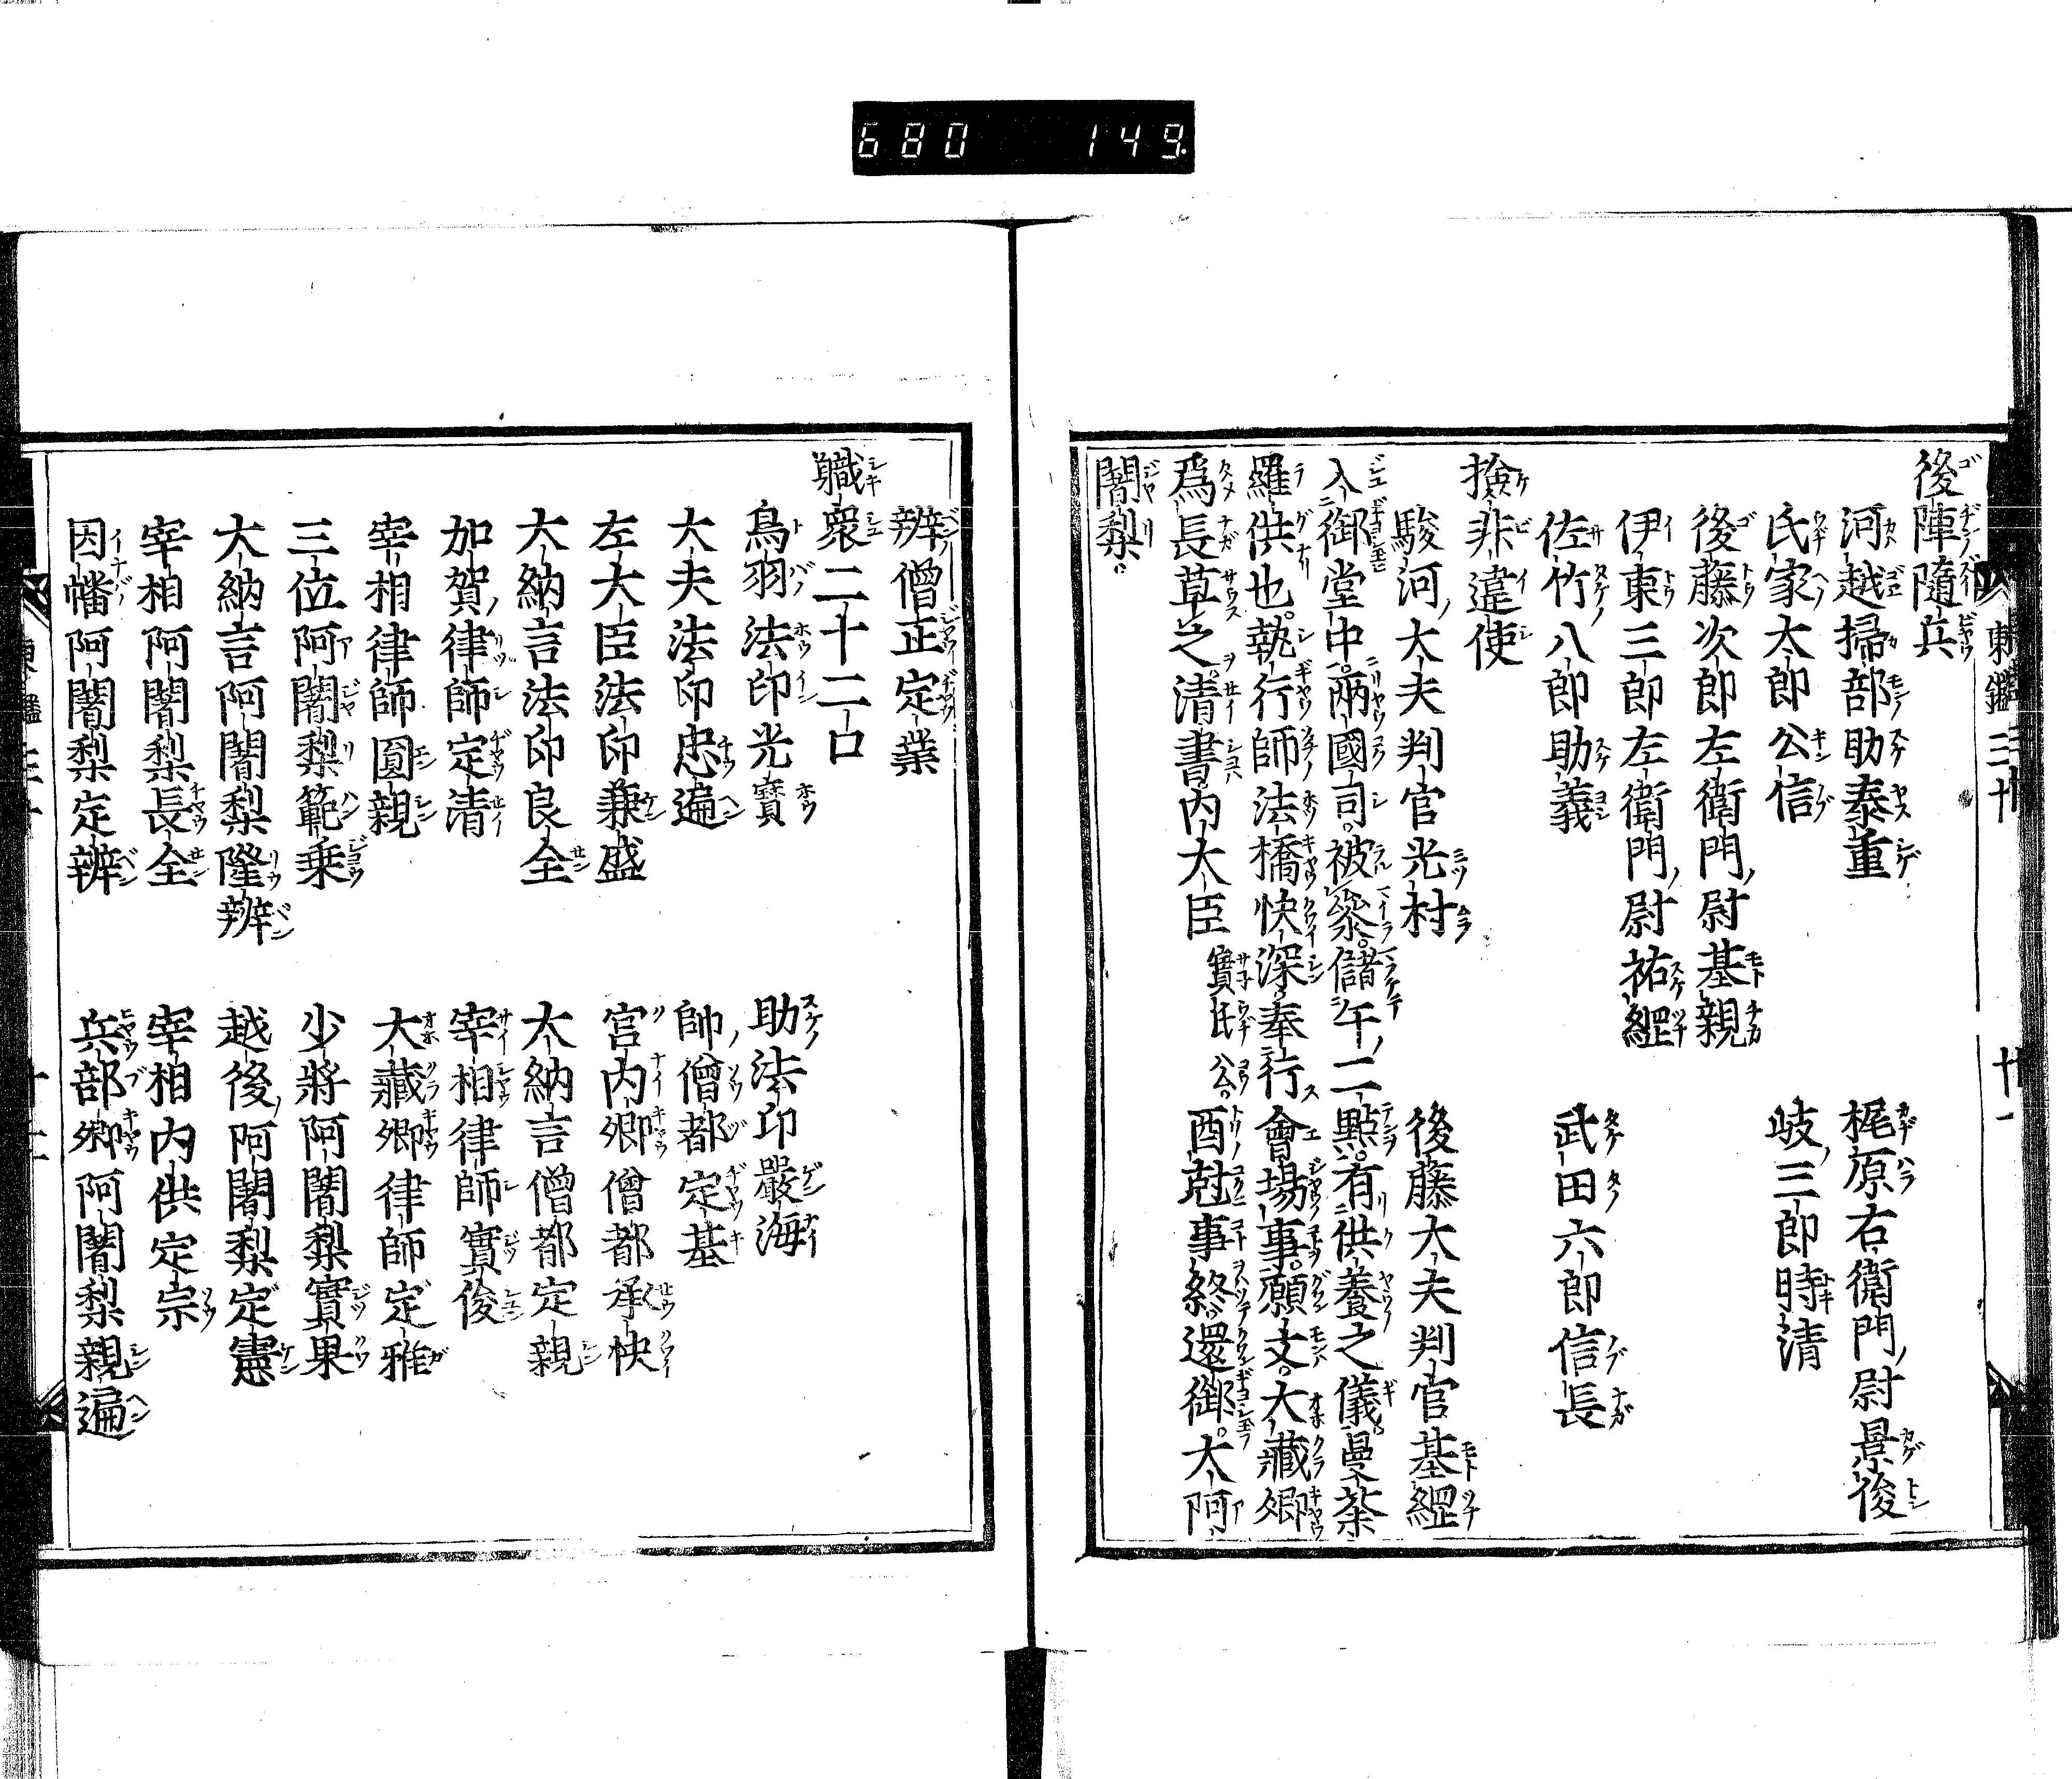 680 149
東鑑三十 十一
後陣隨兵
河越掃部助泰重 梶原右衛門尉景俊
氏家太郎公信 岐三郎時清
後藤次郎左衛門尉基親
伊東三郎左衛門尉祐經
佐竹八郎助義 武田六郎信長
撿非違使
駿河大夫判官光村 後藤大夫判官基經
入御堂中。兩國司。被參儲午二點。有供養之儀。曼茶
羅供也。執行師法橋快深。奉行會場事。願文。大藏卿
爲長草之。清書内大臣實氏公。酉尅事終。還御。大阿
闍梨。
辨僧正定業
職衆二十二口
鳥羽法印光寶 助法印嚴海
大夫法印忠遍 帥僧都定基
左大臣法印兼盛 宮内卿僧都承快
大納言法印良全 大納言僧都定親
加賀律師定清 宰相律師實俊
宰相律師圓親 大藏卿律師定雅
三位阿闍梨範乗 少將阿闍梨實果
大納言阿闍梨隆辨 越後阿闍梨定憲
宰相阿闍梨長全 宰相内供定宗
因幡阿闍梨定辨 兵部卿阿闍梨親遍